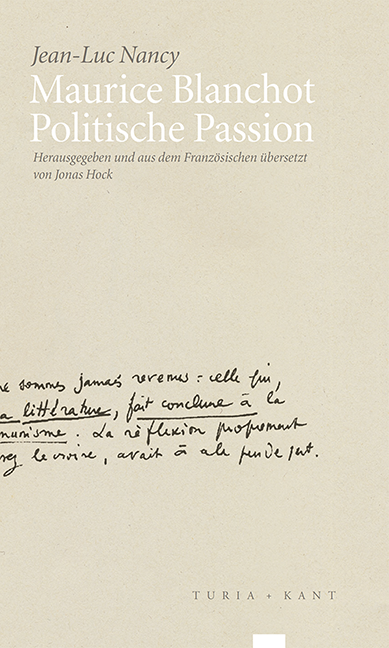 Jean-Luc Nancy
Maurice Blanchot
Politische Passion
Herausgegeben und aus dem Französischen übersetzt
von Jonas Hock
sommes jamais revenus : celle qui,
a littérature, fait conclure à la
munisme. La réflexion proprement
le croire, avait à
TURIA + KANT